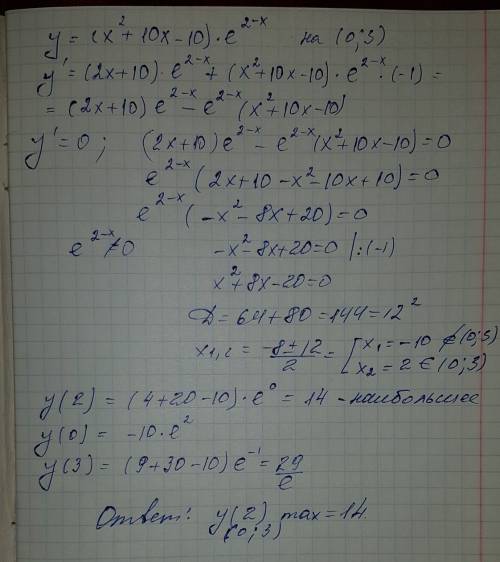 y = (x² + 10x - 10) · e^(2-x) на (0; 3)
y' = (2x+10) · e^(2-x) + (x² + 10x - 10) · e^(2-x) · (-1) =
= (2x+10) e^(2-x) - e^(2-x) (x² + 10x - 10)
y' = 0 ; (2x+10) e^(2-x) - e^(2-x) (x² + 10x - 10) = 0
e^(2-x) (2x + 10 - x² - 10x + 10) = 0
e^(2-x) (-x² - 8x + 20) = 0
e^(2-x) ≠ 0 -x² - 8x + 20 = 0 | : (-1)
x² + 8x - 20 = 0
D = 64 + 80 = 144 = 12²
x₁,₂ = (-8 ± 12)/2 = [ x₁ = -10 ∉ (0; 3)
x₂ = 2 ∈ (0; 3)
y(2) = (4 + 20 - 10) · e⁰ = 14 - наибольшее
y(0) = -10 · e²
y(3) = (9 + 30 - 10) e⁻¹ = 29/e
Ответ: y(2) max = 14.
(0; 3)